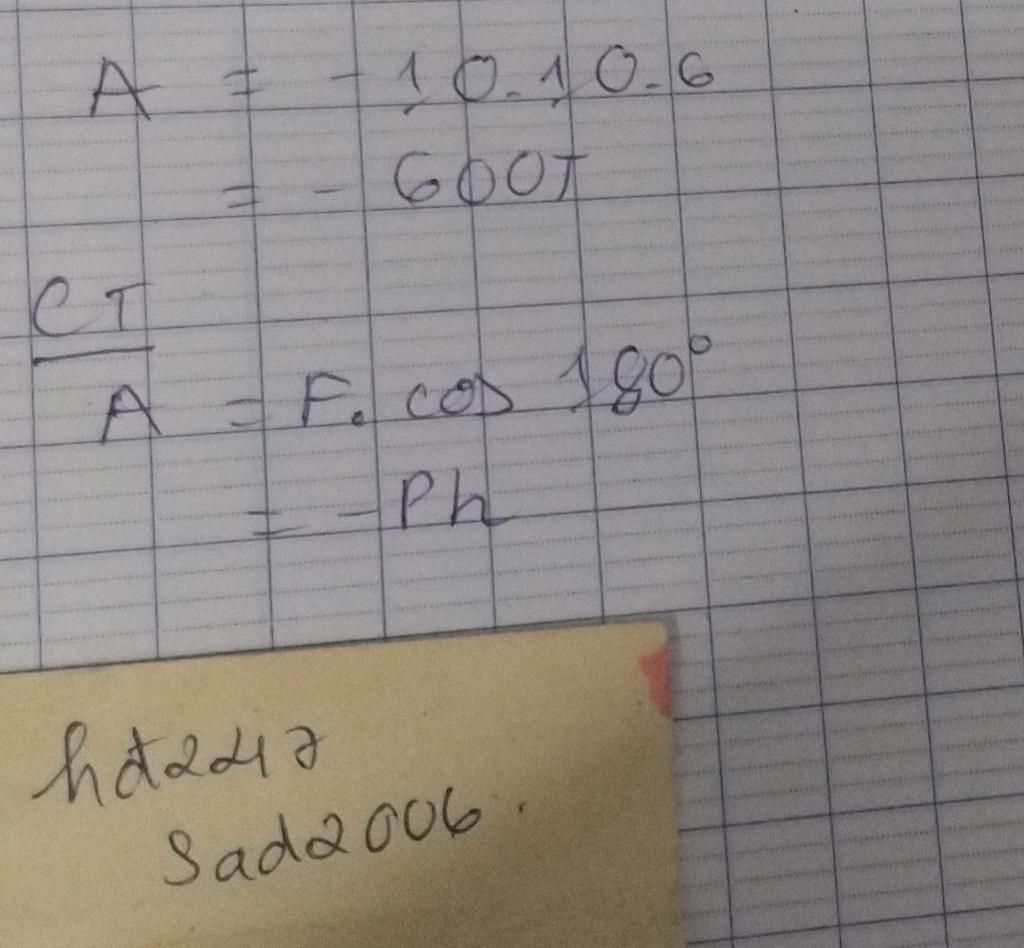 A = - 10.10.6
= - 600J
CT
A = F. cos 180°
= - Ph
hd2247
Sad2006.